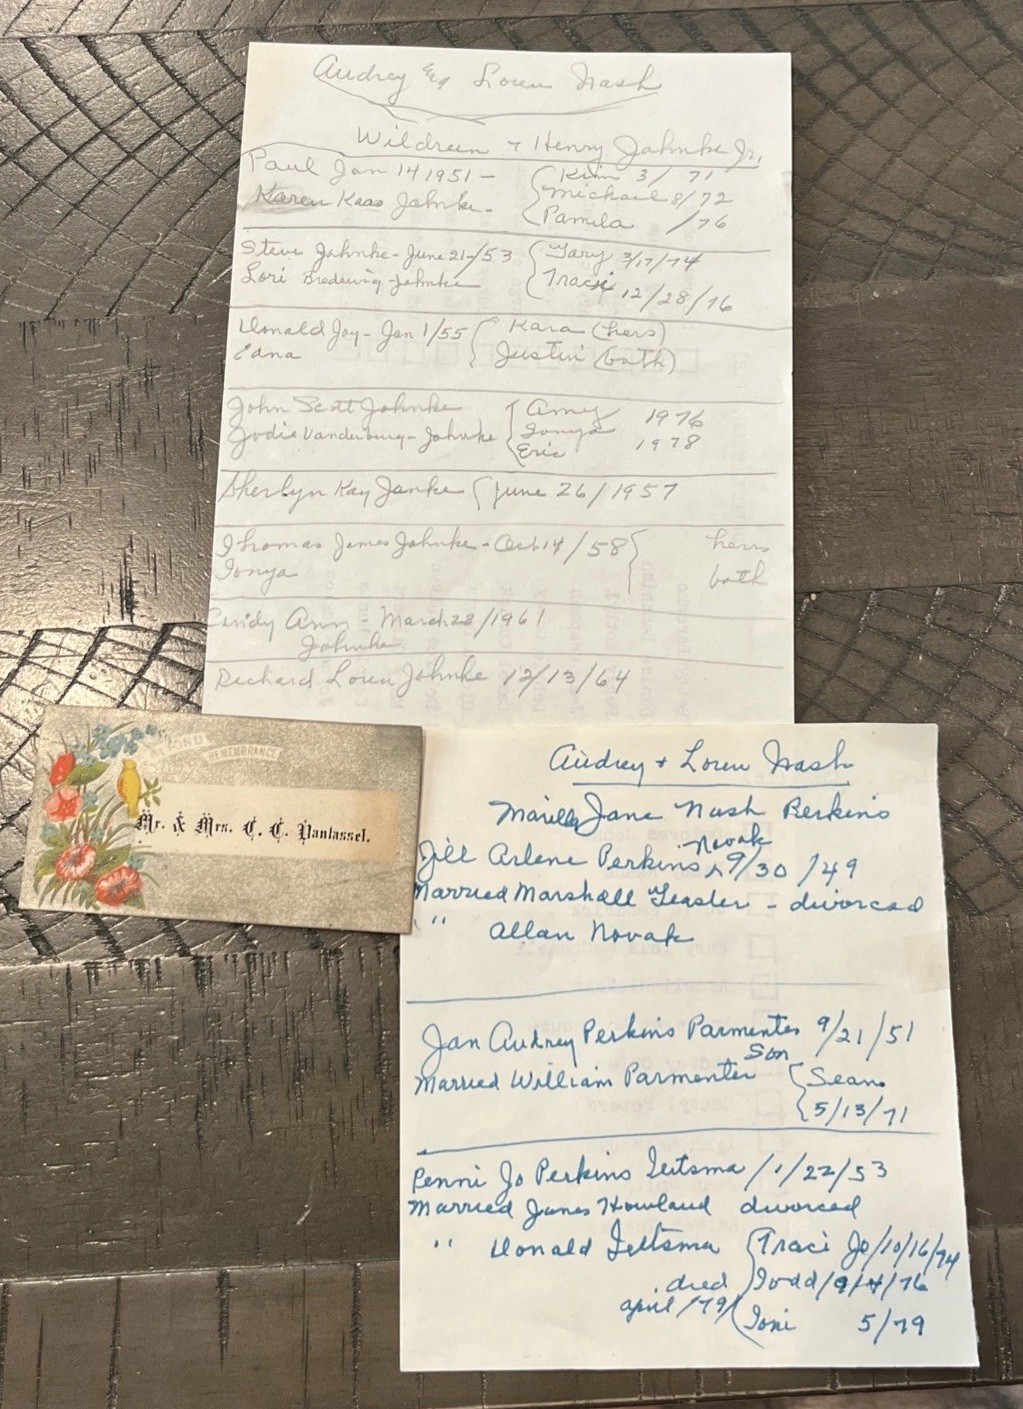 Audrey & Loren Nash
Wildreen + Henry Jahnke Jr,
Paul Jan 14 1951 - Kim 3/ 71
Karen Kaas Jahnke - Michael 8/72
Pamila /76
Steve Jahnke - June 21-/53 Gary 3/17/74
Lori Bredewig-Jahnke Tracie 12/28/76
Donald Joy - Jan 1/55 Kara (hers)
Edna Justin (both)
John Scott Johnke Amy 1976
Jodie Vanderburg-Johnke Tonya 1978
Eric
Sherlyn Kay Janke June 26/1957
Thomas James Johnke - Oct 14/58 hers
Tonya both
Cindy Ann - March 28/1961
Johnke
Richard Loren Johnke 12/13/64
SECOND REMEMBRANCE
Mr. & Mrs. C. C. Vantassel.
Audrey + Loren Nash
Jane Nash Perkins
Novak
Jill Arlene Perkins ^ 9/30/49
Married Marshall Yeasler - divorced
" " Allan Novak
Jan Audrey Perkins Parmenter 9/21/51
Son
Married William Parmenter Sean
5/13/71
Penni Jo Perkins Teitsma /1/22/53
Married James Howland divorced
" Donald Teitsma Traci Jo/10/16/74
died Todd/9/4/76
april /79/ Toni 5/79